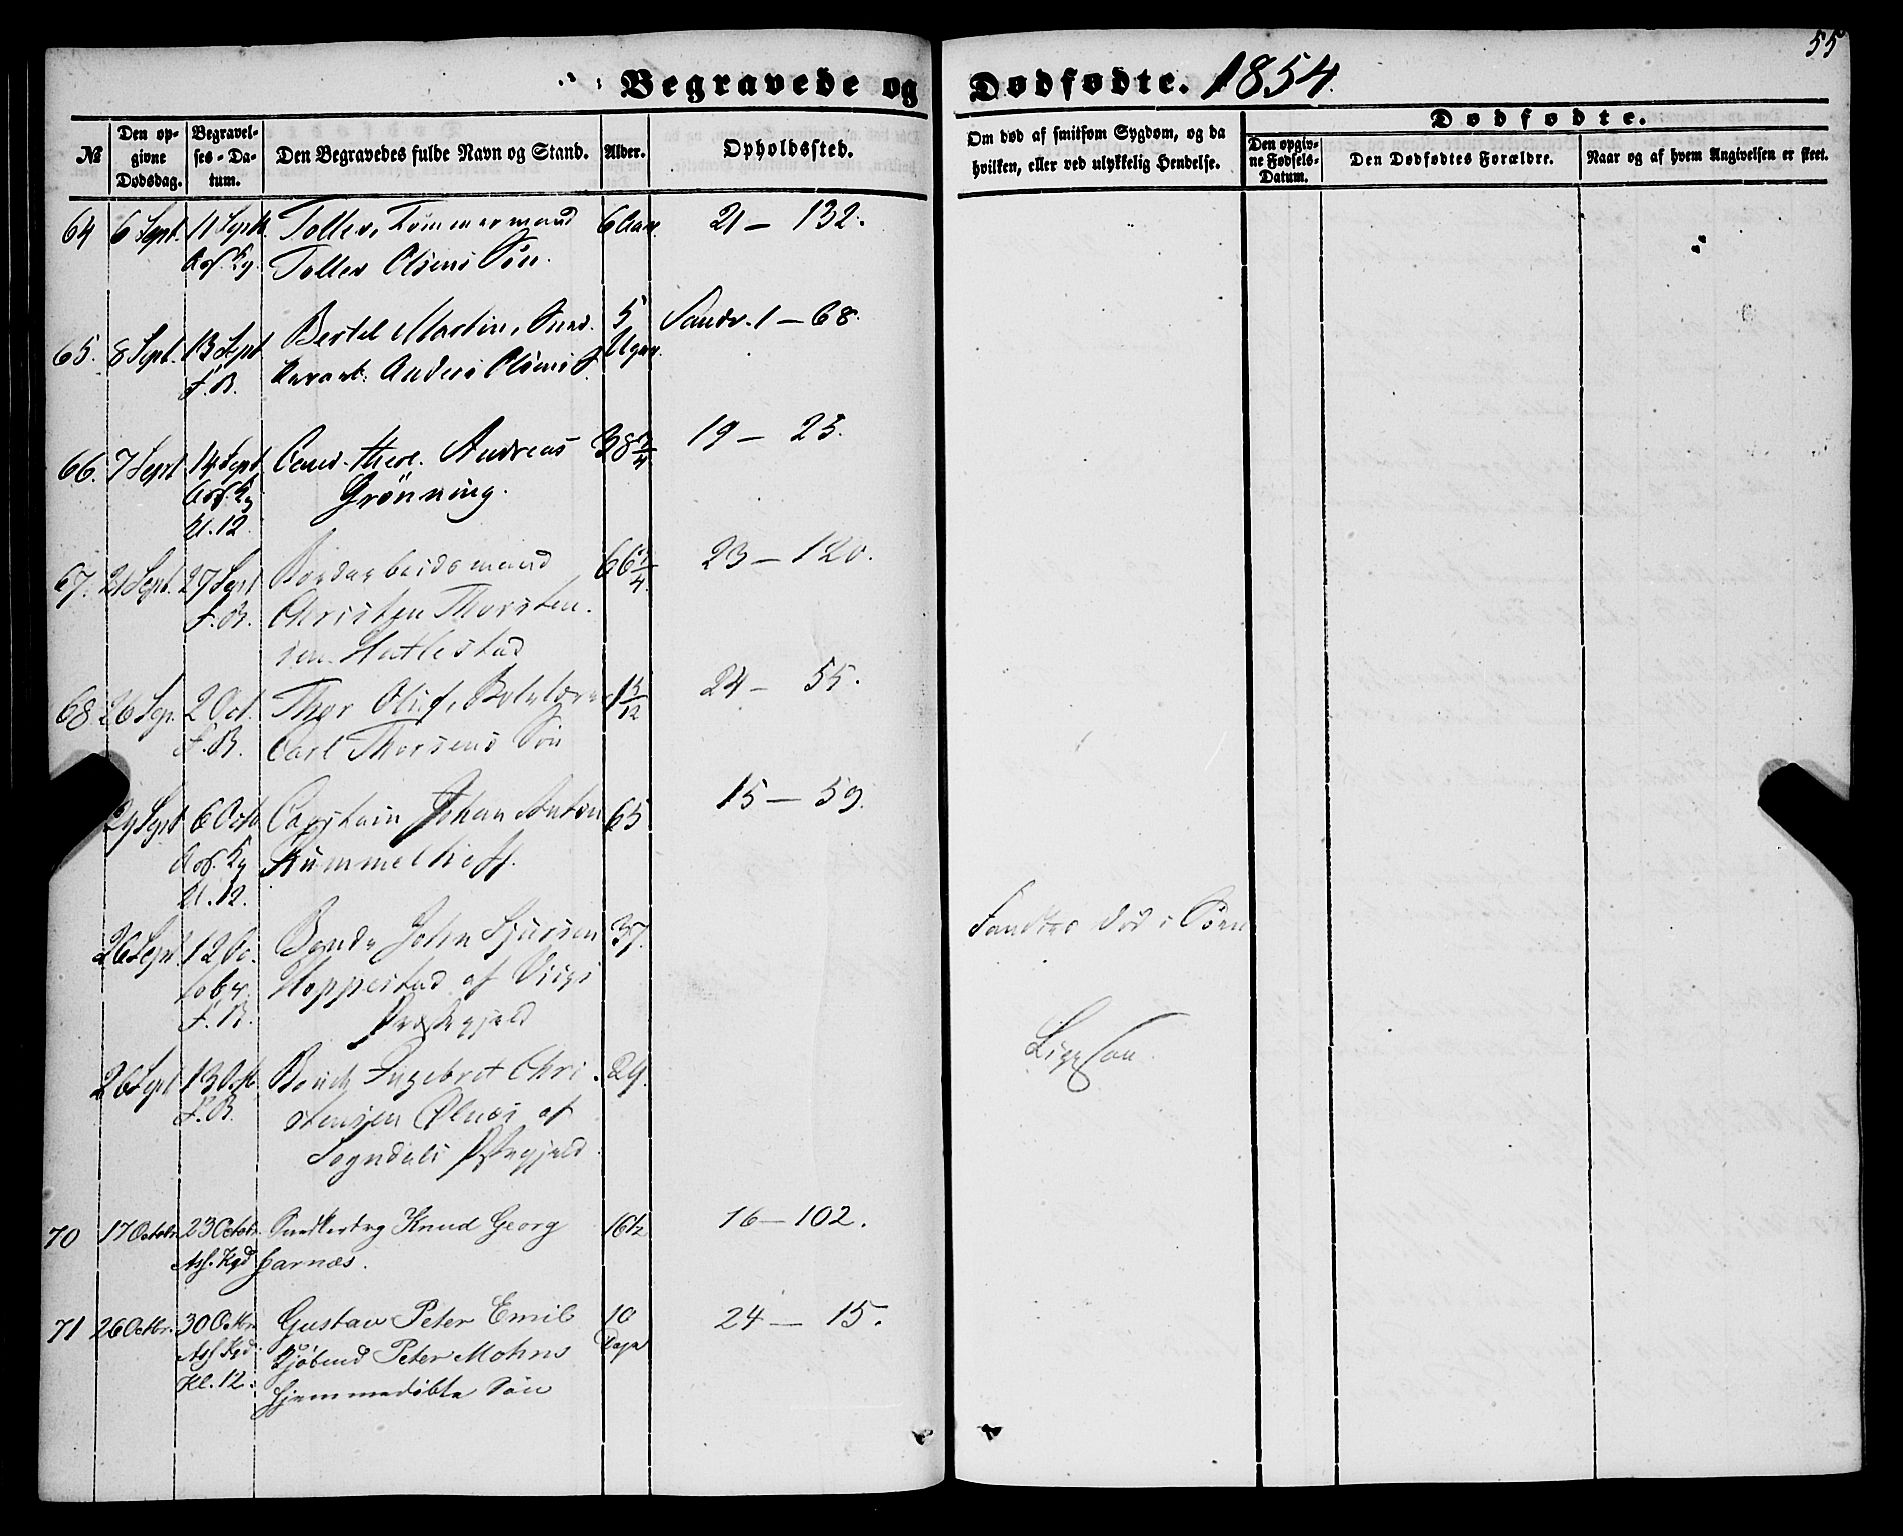 55
Begravede og Dødfødte. 1854.
№
Den opgivne Dødsdag.
Begravelses-Datum.
Den Begravedes fulde Navn og Stand.
Alder.
Opholdssted.
Om død af smitsom Sygdom, og da hvilken, eller ved ulykkelig Hendelse.
Dødfødte.
Den opgivne Fødsels-Datum.
Den Dødfødtes Forældre.
Naar og af hvem Angivelsen er skeet.
64 6 Sept. 11 Septb. Tollev, Tømmermand 6 Aar. 21 – 132.
Ass. Kg. Tollev Olsens Søn.
65. 8 Sept. 13 Sept Bertel Martin, 5 Uger. Sandv. 1 – 68.
F.B. Anders Olsens S.
66. 7 Sept 14 Sept Cand. theol. Andreas 38 3/4 19 – 25.
Ass. Kg Grønning.
Kl. 12
67. 21 Sept. 27 Sept Bordarbeidsmand 66 3/4 23 – 120.
F.B. Christen Thorsten-
sen Hatlestad
68 26 Sep. 2 Oct. Thor Oluf, 24 – 55.
F.B. Carl Thorsens Søn
29 Sept 6 Octb Captain Johan Anton 65 15 – 59.
Ass. Kg Kummelhoff.
Kl. 12.
26 Sept. 12 Oc- Bonde John Sjursen 37. Fandtes død i Søen
tobr. Hoppestad af Viigs
F.B. Præstegjeld
26 Sept 13 Oct. Bonde Ingebret Chri- 29. Ligesaa.
F.B. stensen Ølnes af
Sogndals Præstegjeld.
70 17 Octobr. 23 Octobr. Snedkerdrg Knud Georg 16 1/2 16 – 102.
Ass. Kgd Harnæs.
71 26 Octbr. 30 Octbr. Gustav Peter Emil 10 Dage 24 – 15.
Ass Kgd. Kjøbmd Peter Mohns
Kl. 12. hjemmedøbte Søn